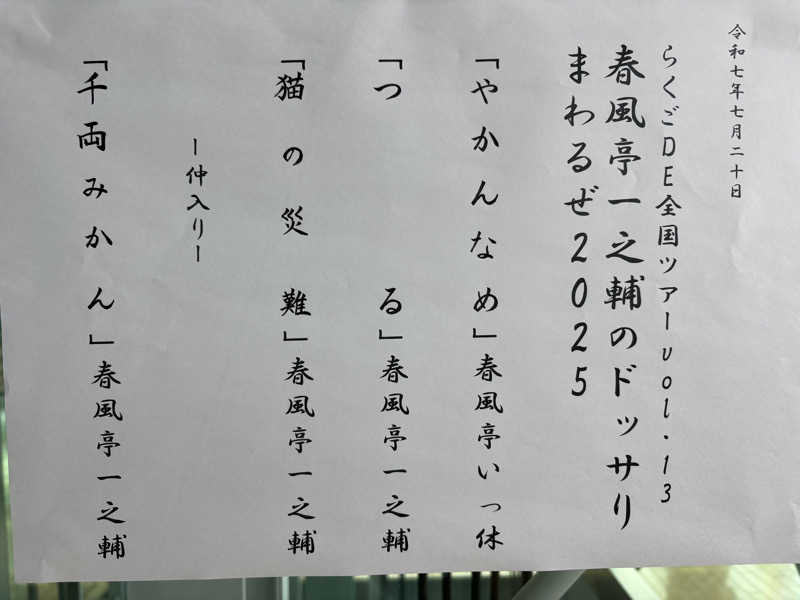 令和七年七月二十日
らくごDE全国ツアーvol.13
春風亭一之輔のドッサリ
まわるぜ2025
「やかんなめ」春風亭いっ休
「つる」春風亭一之輔
「猫の災難」春風亭一之輔
ー仲入りー
「千両みかん」春風亭一之輔